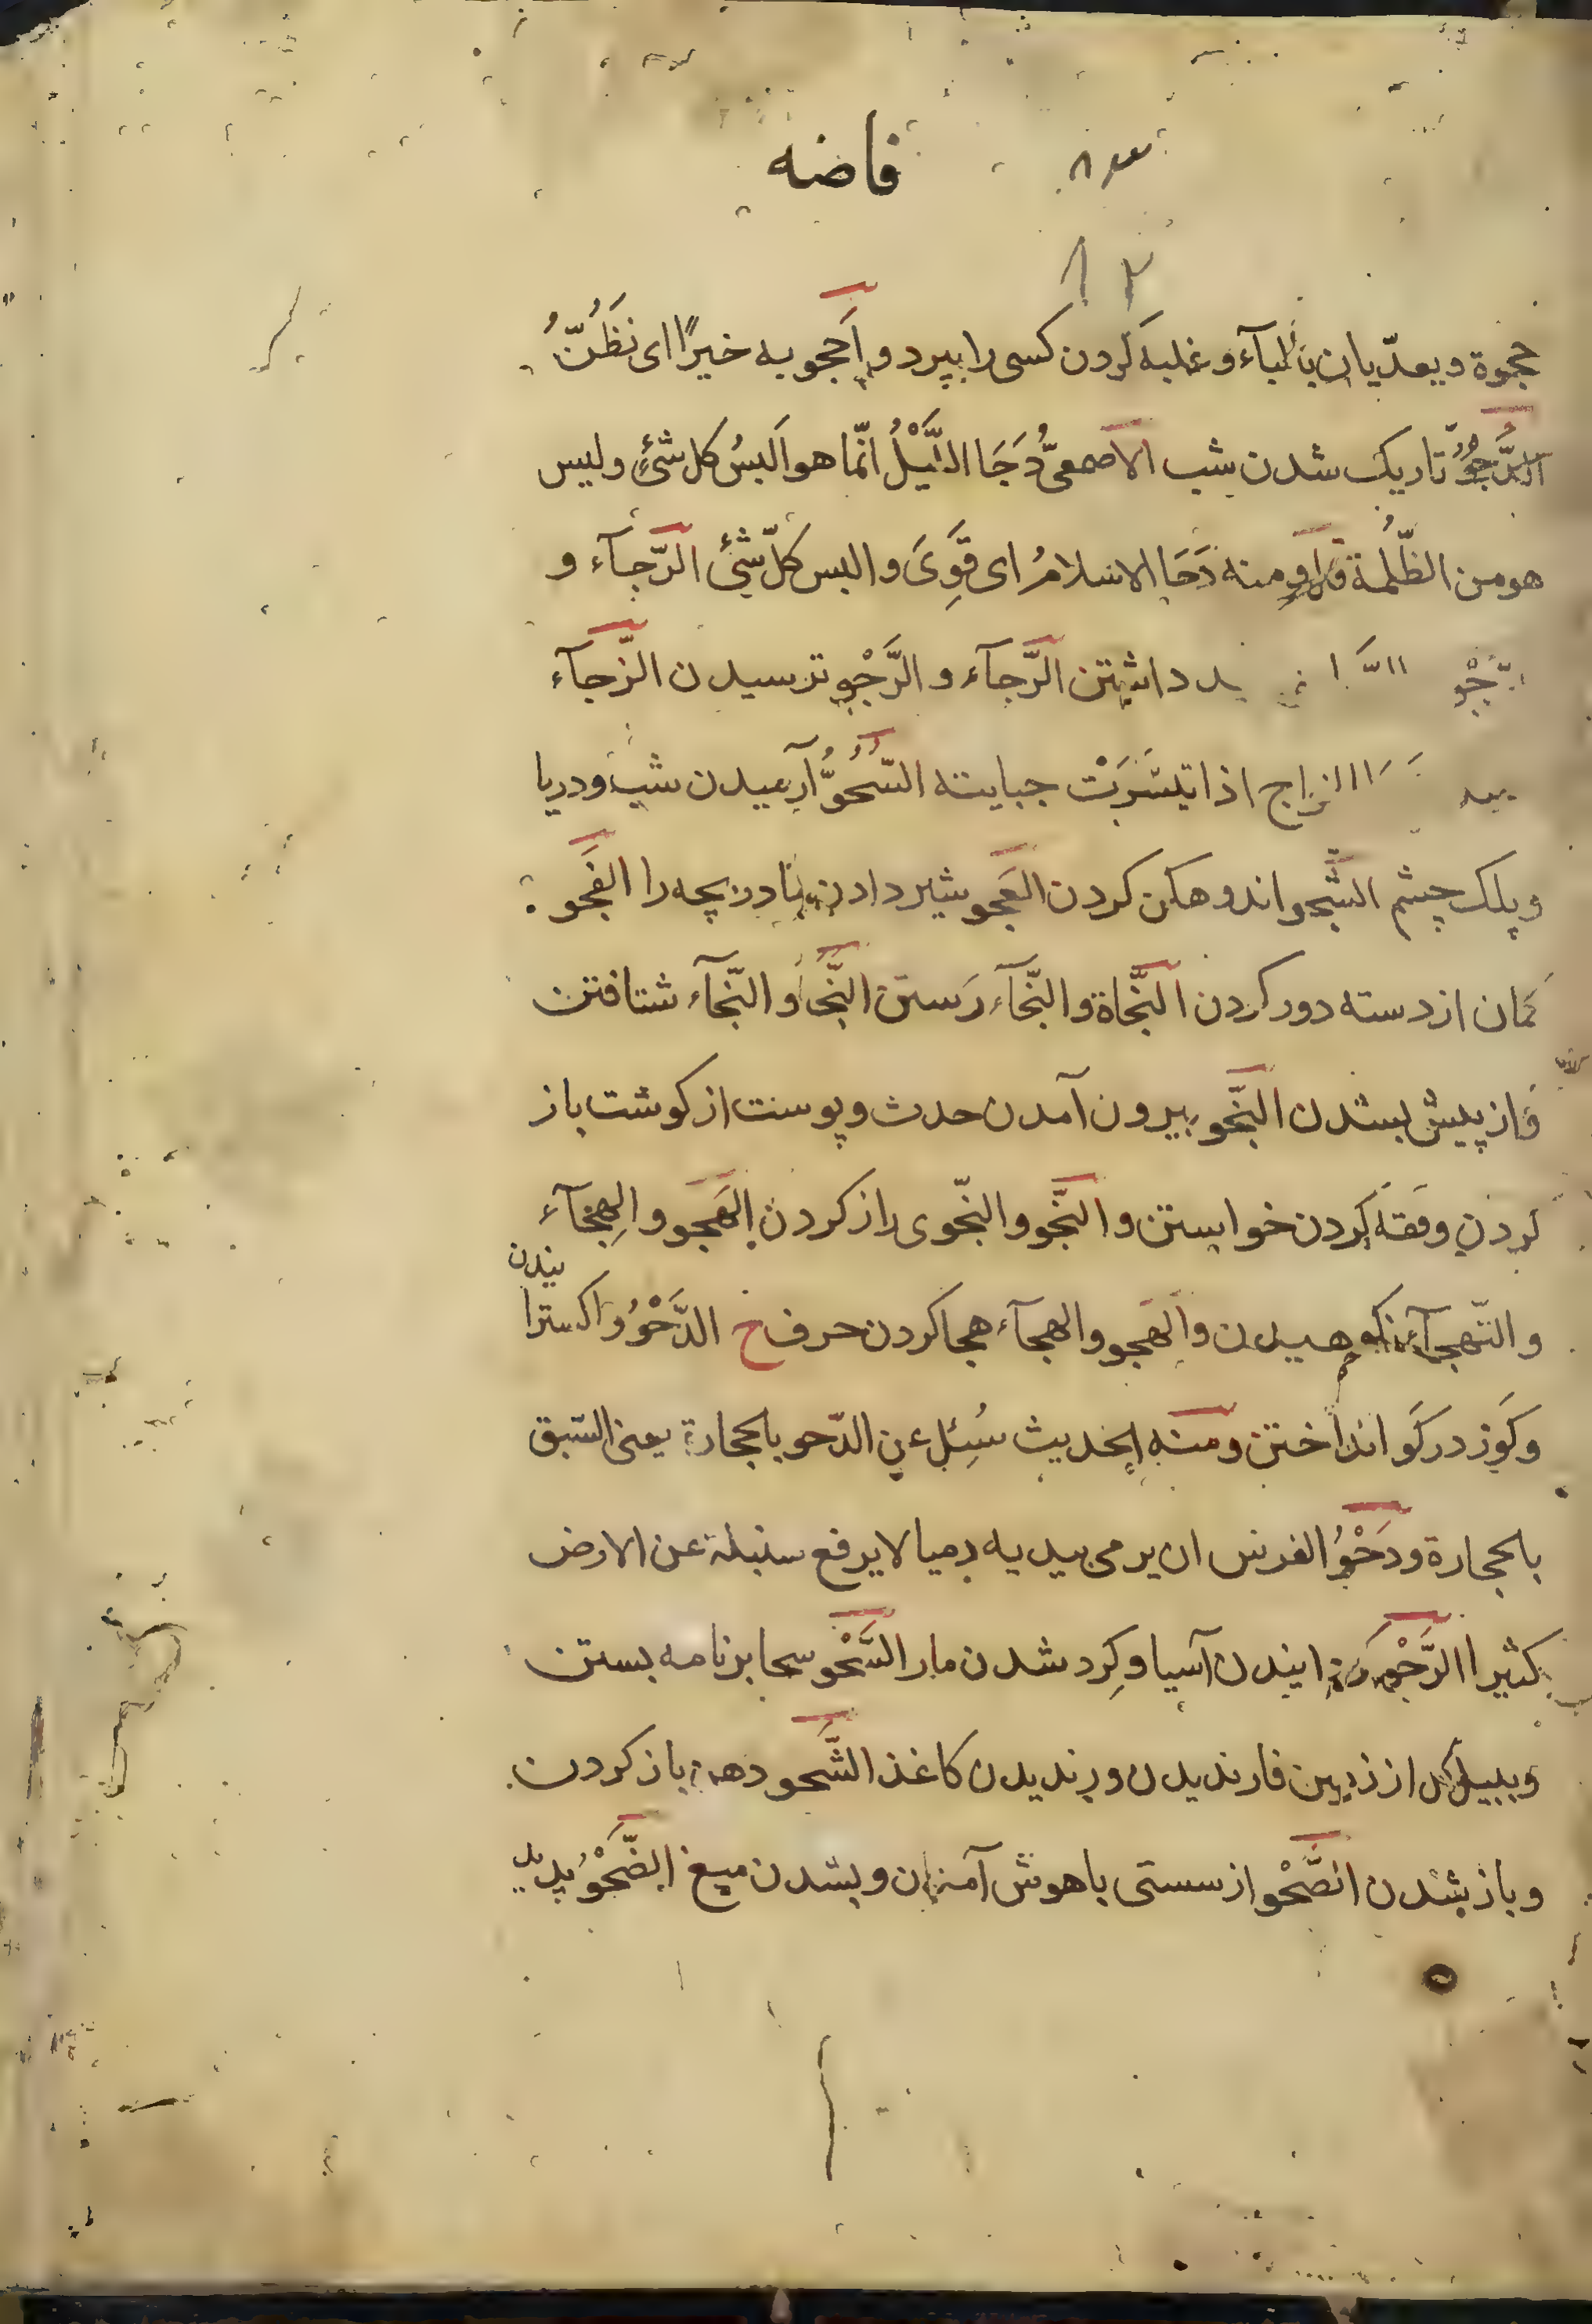 فاضه
۸۲
حجوة ويعدّيان بالبآء وغلبه كردن كسى را ببرد و اَحجو به خيرًا اى نظَنُّ
الدُّجُوُّ تاريك شدن شب الاصمعىُّ دَجَا اللَّيْلُ انّما هو اَلبسُ كل شئٍ وليس
هو من الظُّلْمة ومنه دَجَا الاسلامُ اى قَوِىَ والبس كلّ شئ الرّجآء و
الرَّجْو داشتن الرَّجآء و الرَّجْو ترسيدن الزّجآء
الخراج اذا تيسَّرَتْ جبايته السُّجُوُّ آرميدن شب ودريا
وپلك چشم الشَّجو اندوهكن كردن العَجو شير دادن مادر بچه را الفَجو
كمان از دسته دور كردن النَّجاة والنّجآء رَستن النَّجا والنّجآء شتافتن
فاز پيش بشدن النَّجو بيرون آمدن حدث وپوست از كوشت باز
كردن و كردن خواستن و النَّجو والنّجوى راز كردن الهَجو والهِجآء
والتّهجآء نكوهيدن والهَجو والهجآء هجا كردن حرف ح الدَّحْوُ واكسترانيدن
وكَوز در كَو انداختن ومنه الحديث سُئِل عن الدّحو بالحجارة يعنى السّبق
بالحجارة ودَحْوُ الفرس ان يرمى بيديه رميا لا يرفع سنبكه عن الارض
كثيرا الرَّحْو آسيا وكِرد شدن مار السَّحْو سحا بر نامه بستن
وببيل كل از زمين فارنديدن ورنديدن كاغذ الشَّحو دهن باز كردن
وباز شدن الصَّحْو از مستى با هوش آمدن وبشدن ميغ الضَّحْوُ پديد